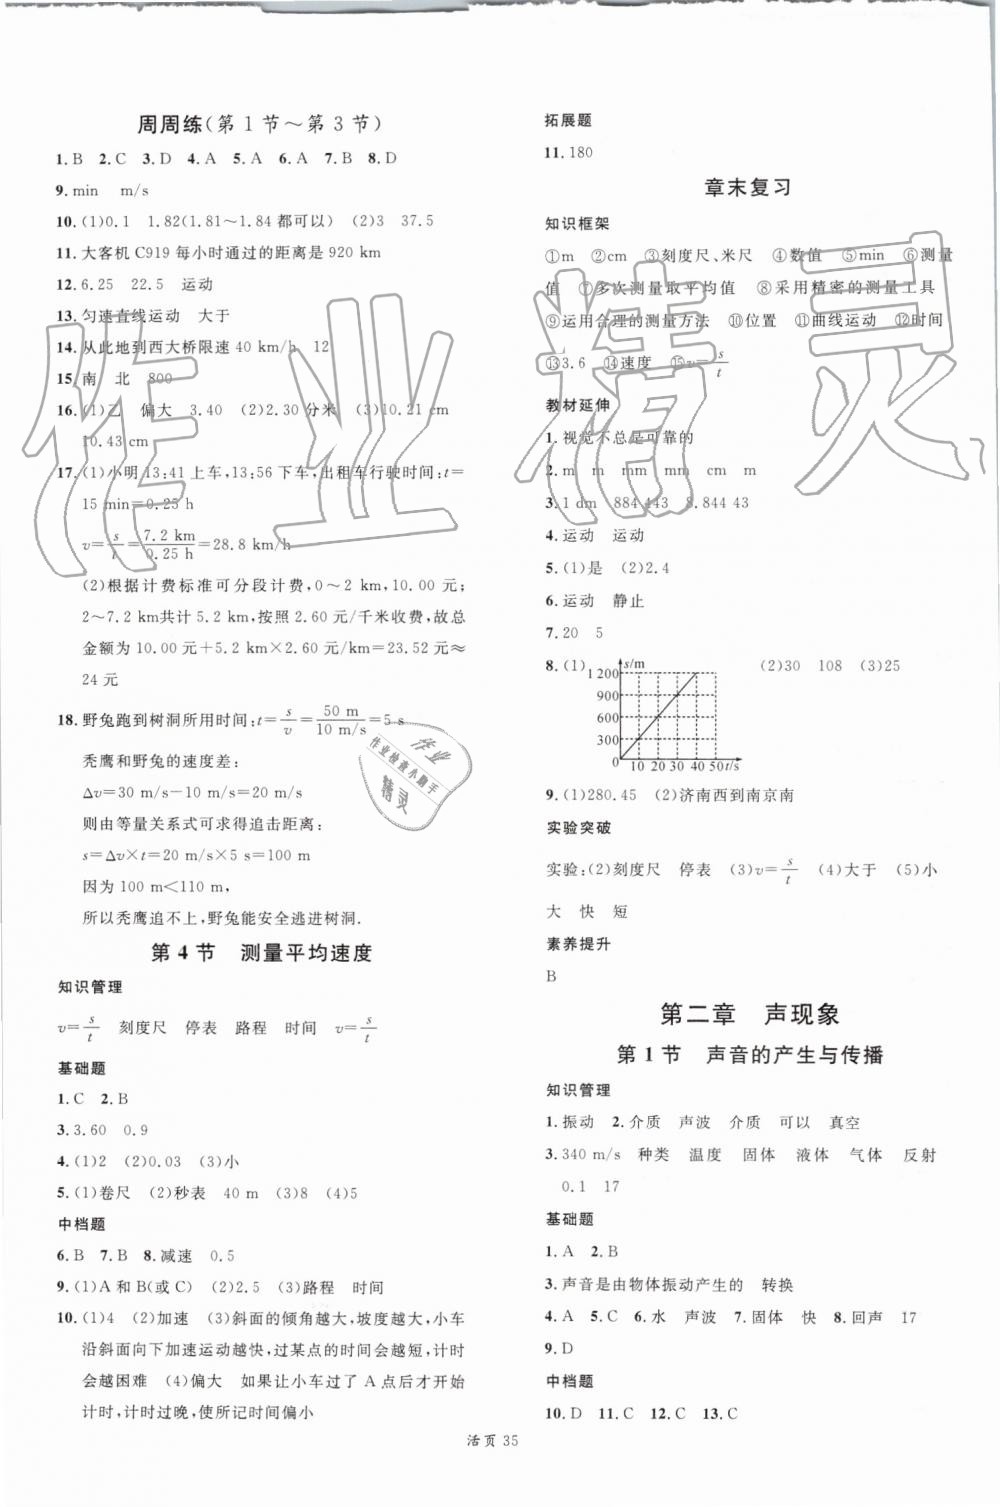 周周练(第1节～第3节)
1.B 2.C 3.D 4.A 5.A 6.A 7.B 8.D
9.min m/s
10.(1)0.1 1.82(1.81～1.84都可以) (2)3 37.5
11.大客机C919每小时通过的距离是920 km
12.6.25 22.5 运动
13.匀速直线运动 大于
14.从此地到西大桥限速40 km/h 12
15.南 北 800
16.(1)乙 偏大 3.40 (2)2.30 分米 (3)10.21 cm
10.43 cm
17.(1)小明13:41上车,13:56下车,出租车行驶时间:t=
15 min=0.25 h
v=s/t=7.2 km/0.25 h=28.8 km/h
(2)根据计费标准可分段计费,0～2 km,10.00元;
2～7.2 km共计5.2 km,按照2.60元/千米收费,故总
金额为10.00元+5.2 km×2.60元/km=23.52元≈
24元
18.野兔跑到树洞所用时间:t=s/v=50 m/10 m/s=5 s
秃鹰和野兔的速度差:
Δv=30 m/s-10 m/s=20 m/s
则由等量关系式可求得追击距离:
s=Δv×t=20 m/s×5 s=100 m
因为100 m<110 m,
所以秃鹰追不上,野兔能安全逃进树洞.
第4节 测量平均速度
知识管理
v=s/t 刻度尺 停表 路程 时间 v=s/t
基础题
1.C 2.B
3.3.60 0.9
4.(1)2 (2)0.03 (3)小
5.(1)卷尺 (2)秒表 40 m (3)8 (4)5
中档题
6.B 7.B 8.减速 0.5
9.(1)A和B(或C) (2)2.5 (3)路程 时间
10.(1)4 (2)加速 (3)斜面的倾角越大,坡度越大,小车
沿斜面向下加速运动越快,过某点的时间会越短,计时
会越困难 (4)偏大 如果让小车过了A点后才开始
计时,计时过晚,使所记时间偏小
拓展题
11.180
章末复习
知识框架
①m ②cm ③刻度尺、米尺 ④数值 ⑤min ⑥测量
值 ⑦多次测量取平均值 ⑧采用精密的测量工具
⑨运用合理的测量方法 ⑩位置 ⑪曲线运动 ⑫时间
⑬3.6 ⑭速度 ⑮v=s/t
教材延伸
1.视觉不总是可靠的
2.m m mm mm cm m
3.1 dm 884 443 8.844 43
4.运动 运动
5.(1)是 (2)2.4
6.运动 静止
7.20 5
8.(1) (2)30 108 (3)25
s/m
1 200
900
600
300
0 10 20 30 40 50 t/s
9.(1)280.45 (2)济南西到南京南
实验突破
实验:(2)刻度尺 停表 (3)v=s/t (4)大于 (5)小
大 快 短
素养提升
B
第二章 声现象
第1节 声音的产生与传播
知识管理
1.振动 2.介质 声波 介质 可以 真空
3.340 m/s 种类 温度 固体 液体 气体 反射
0.1 17
基础题
1.A 2.B
3.声音是由物体振动产生的 转换
4.A 5.C 6.水 声波 7.固体 快 8.回声 17
9.D
中档题
10.D 11.C 12.C 13.C
活页 35
作业精灵
作业
作业检查小助手
精灵